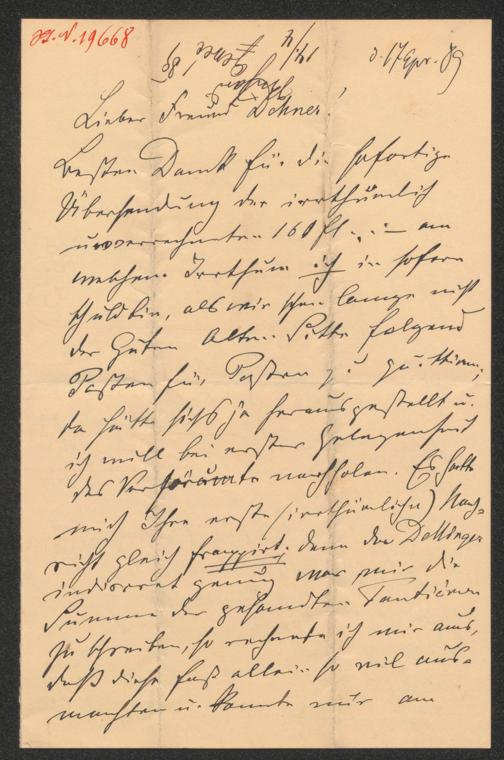 H.I.N. 19668
14/4
d. 17 Apr. 89
Lieber Freund Dehner!
Besten Dank für die sofortige
Übersendung der irrthümlich
unverrechneten 160 fl. – an
welchem Irrthum ich in sofern
schuld bin, als wir schon lange nicht
der guten alten Sitte folgend
Posten für Posten zu quittiren;
da hätte sichs ja herausgestellt u.
ich will bei erster Gelegenheit
das Versäumte nachholen. Es hatte
mich Ihre erste (irrthümliche) Nach=
richt gleich frappirt. denn da Dellinger
indiscret genug war mir die
Summe der gesandten Tantièmen
zu schreiben, so rechnete ich mir aus,
daß diese fast allein so viel aus=
machten u. konnte mir am